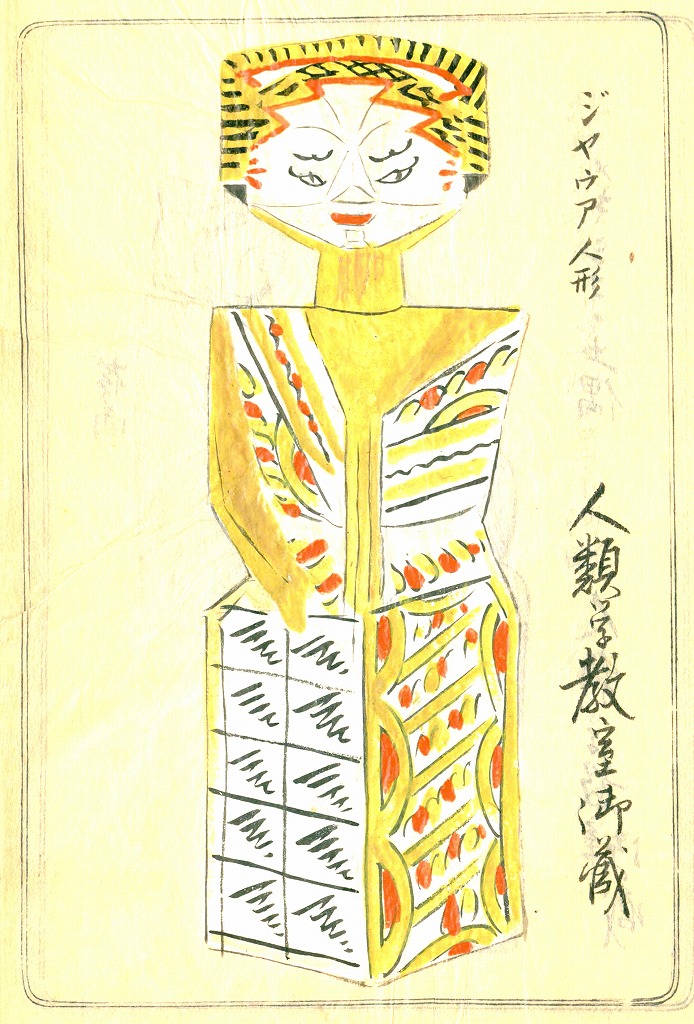 ジャウア人形
人類学教室御蔵